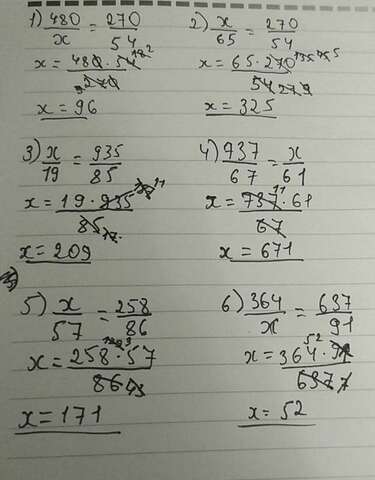 1) 480/x = 270/54
x = 480 · 54 / 270
x = 96
2) x/65 = 270/54
x = 65 · 270 / 54
x = 325
3) x/19 = 935/85
x = 19 · 935 / 85
x = 209
4) 737/67 = x/61
x = 737 · 61 / 67
x = 671
5) x/57 = 258/86
x = 258 · 57 / 86
x = 171
6) 364/x = 637/91
x = 364 · 91 / 637
x = 52